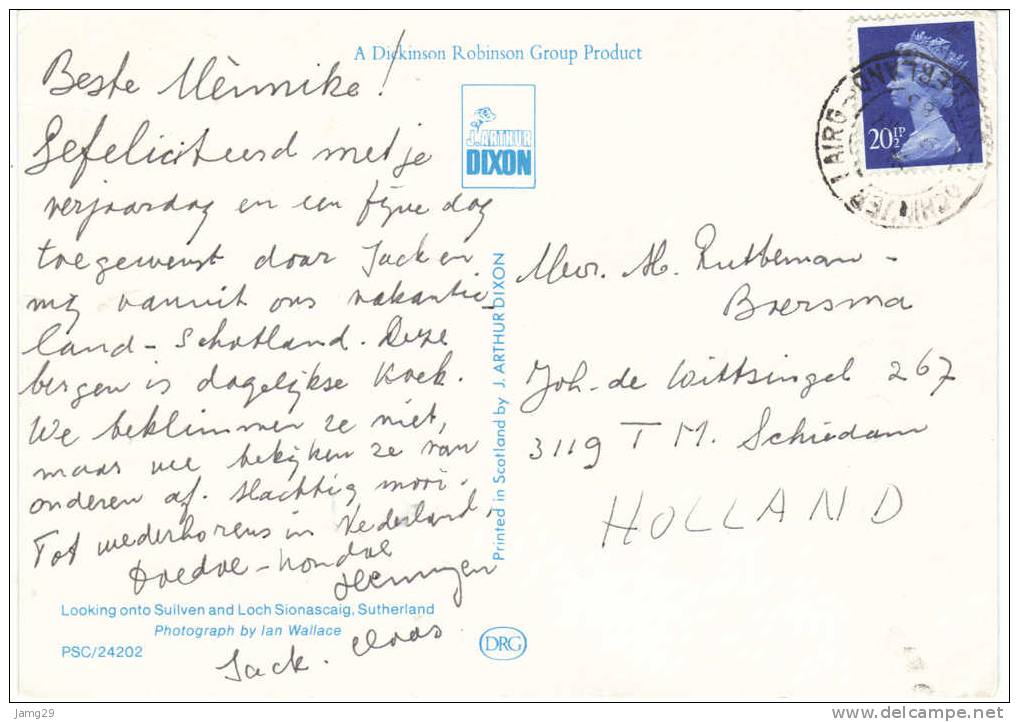 A Dickinson Robinson Group Product
Beste Mèinnike!
Gefeliciteerd met je
verjaardag en een fijne dag
toegewenst door Jack en
mij vanuit ons vakantie
land - Schotland. Deze
bergen is dagelijkse koek.
We beklimmen ze niet,
maar we bekijken ze van
onderen af. Machtig mooi.
Tot wederhorens in Nederland,
Doedoe - hondoe
Jack.
J. ARTHUR
DIXON
Printed in Scotland by J. ARTHUR DIXON
20½P
LAIRG
SUTHERLAND
Mevr. M. Rutteman -
Boersma
Joh. de Wittsingel 267
3119 T M. Schiedam
HOLLAND
Looking onto Suilven and Loch Sionascaig, Sutherland
Photograph by Ian Wallace
PSC/24202
DRG
Jamg29
www.delcampe.net